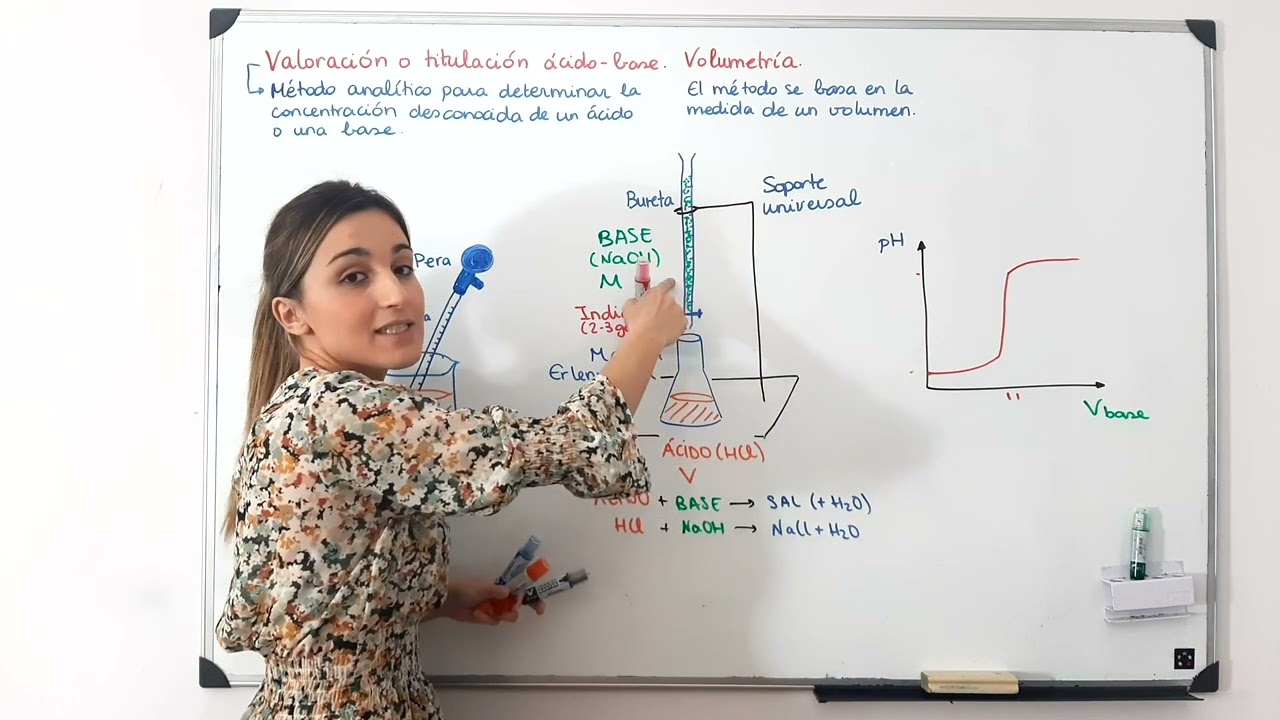 Valoración o titulación ácido-base. Volumetría.
Método analítico para determinar la
concentración desconocida de un ácido
o una base.
El método se basa en la
medida de un volumen.
Bureta
Soporte
universal
Pera
BASE
(NaOH)
M
(2-3
ÁCIDO (HCl)
V
+ BASE → SAL (+H₂O)
HCl + NaOH → NaCl + H₂O
pH
Vbase